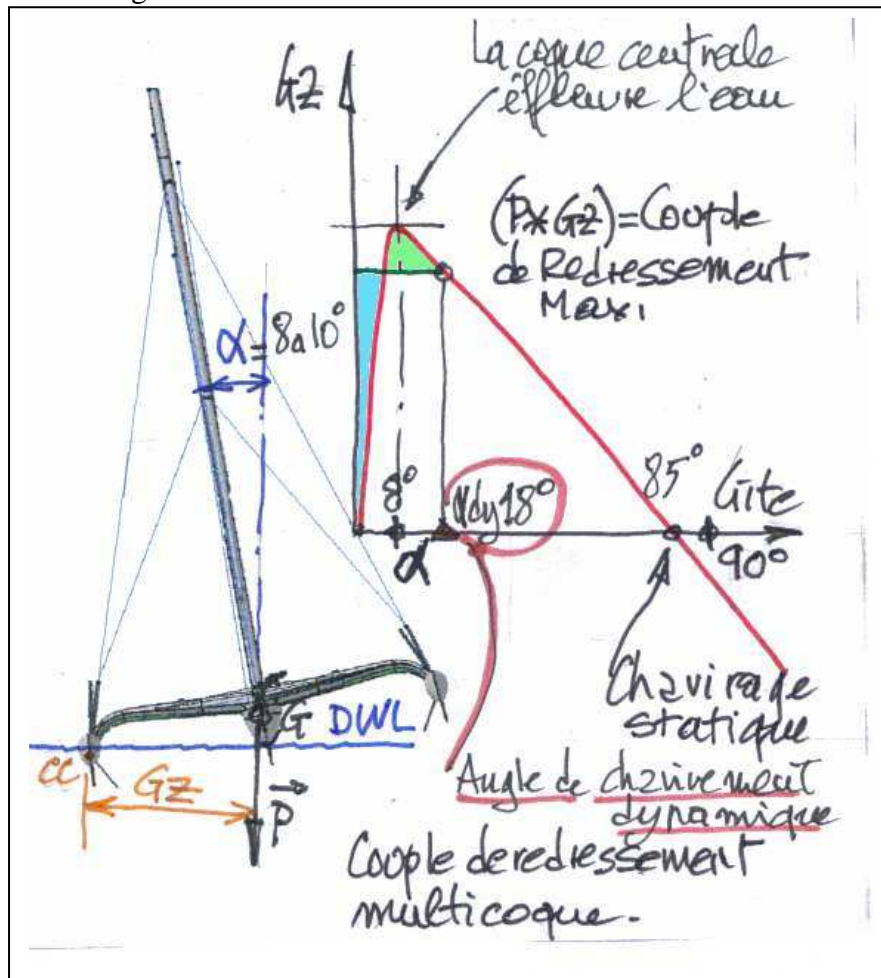 GZ
La coque centrale
éffleure l'eau
(P*GZ)=Couple
de Redressement
Maxi
α=8à10°
8°
α
αdy18°
85°
Gite
90°
Chavirage
statique
G
DWL
CC
GZ
P
Angle de chavirement
dynamique
Couple de redressement
multicoque.